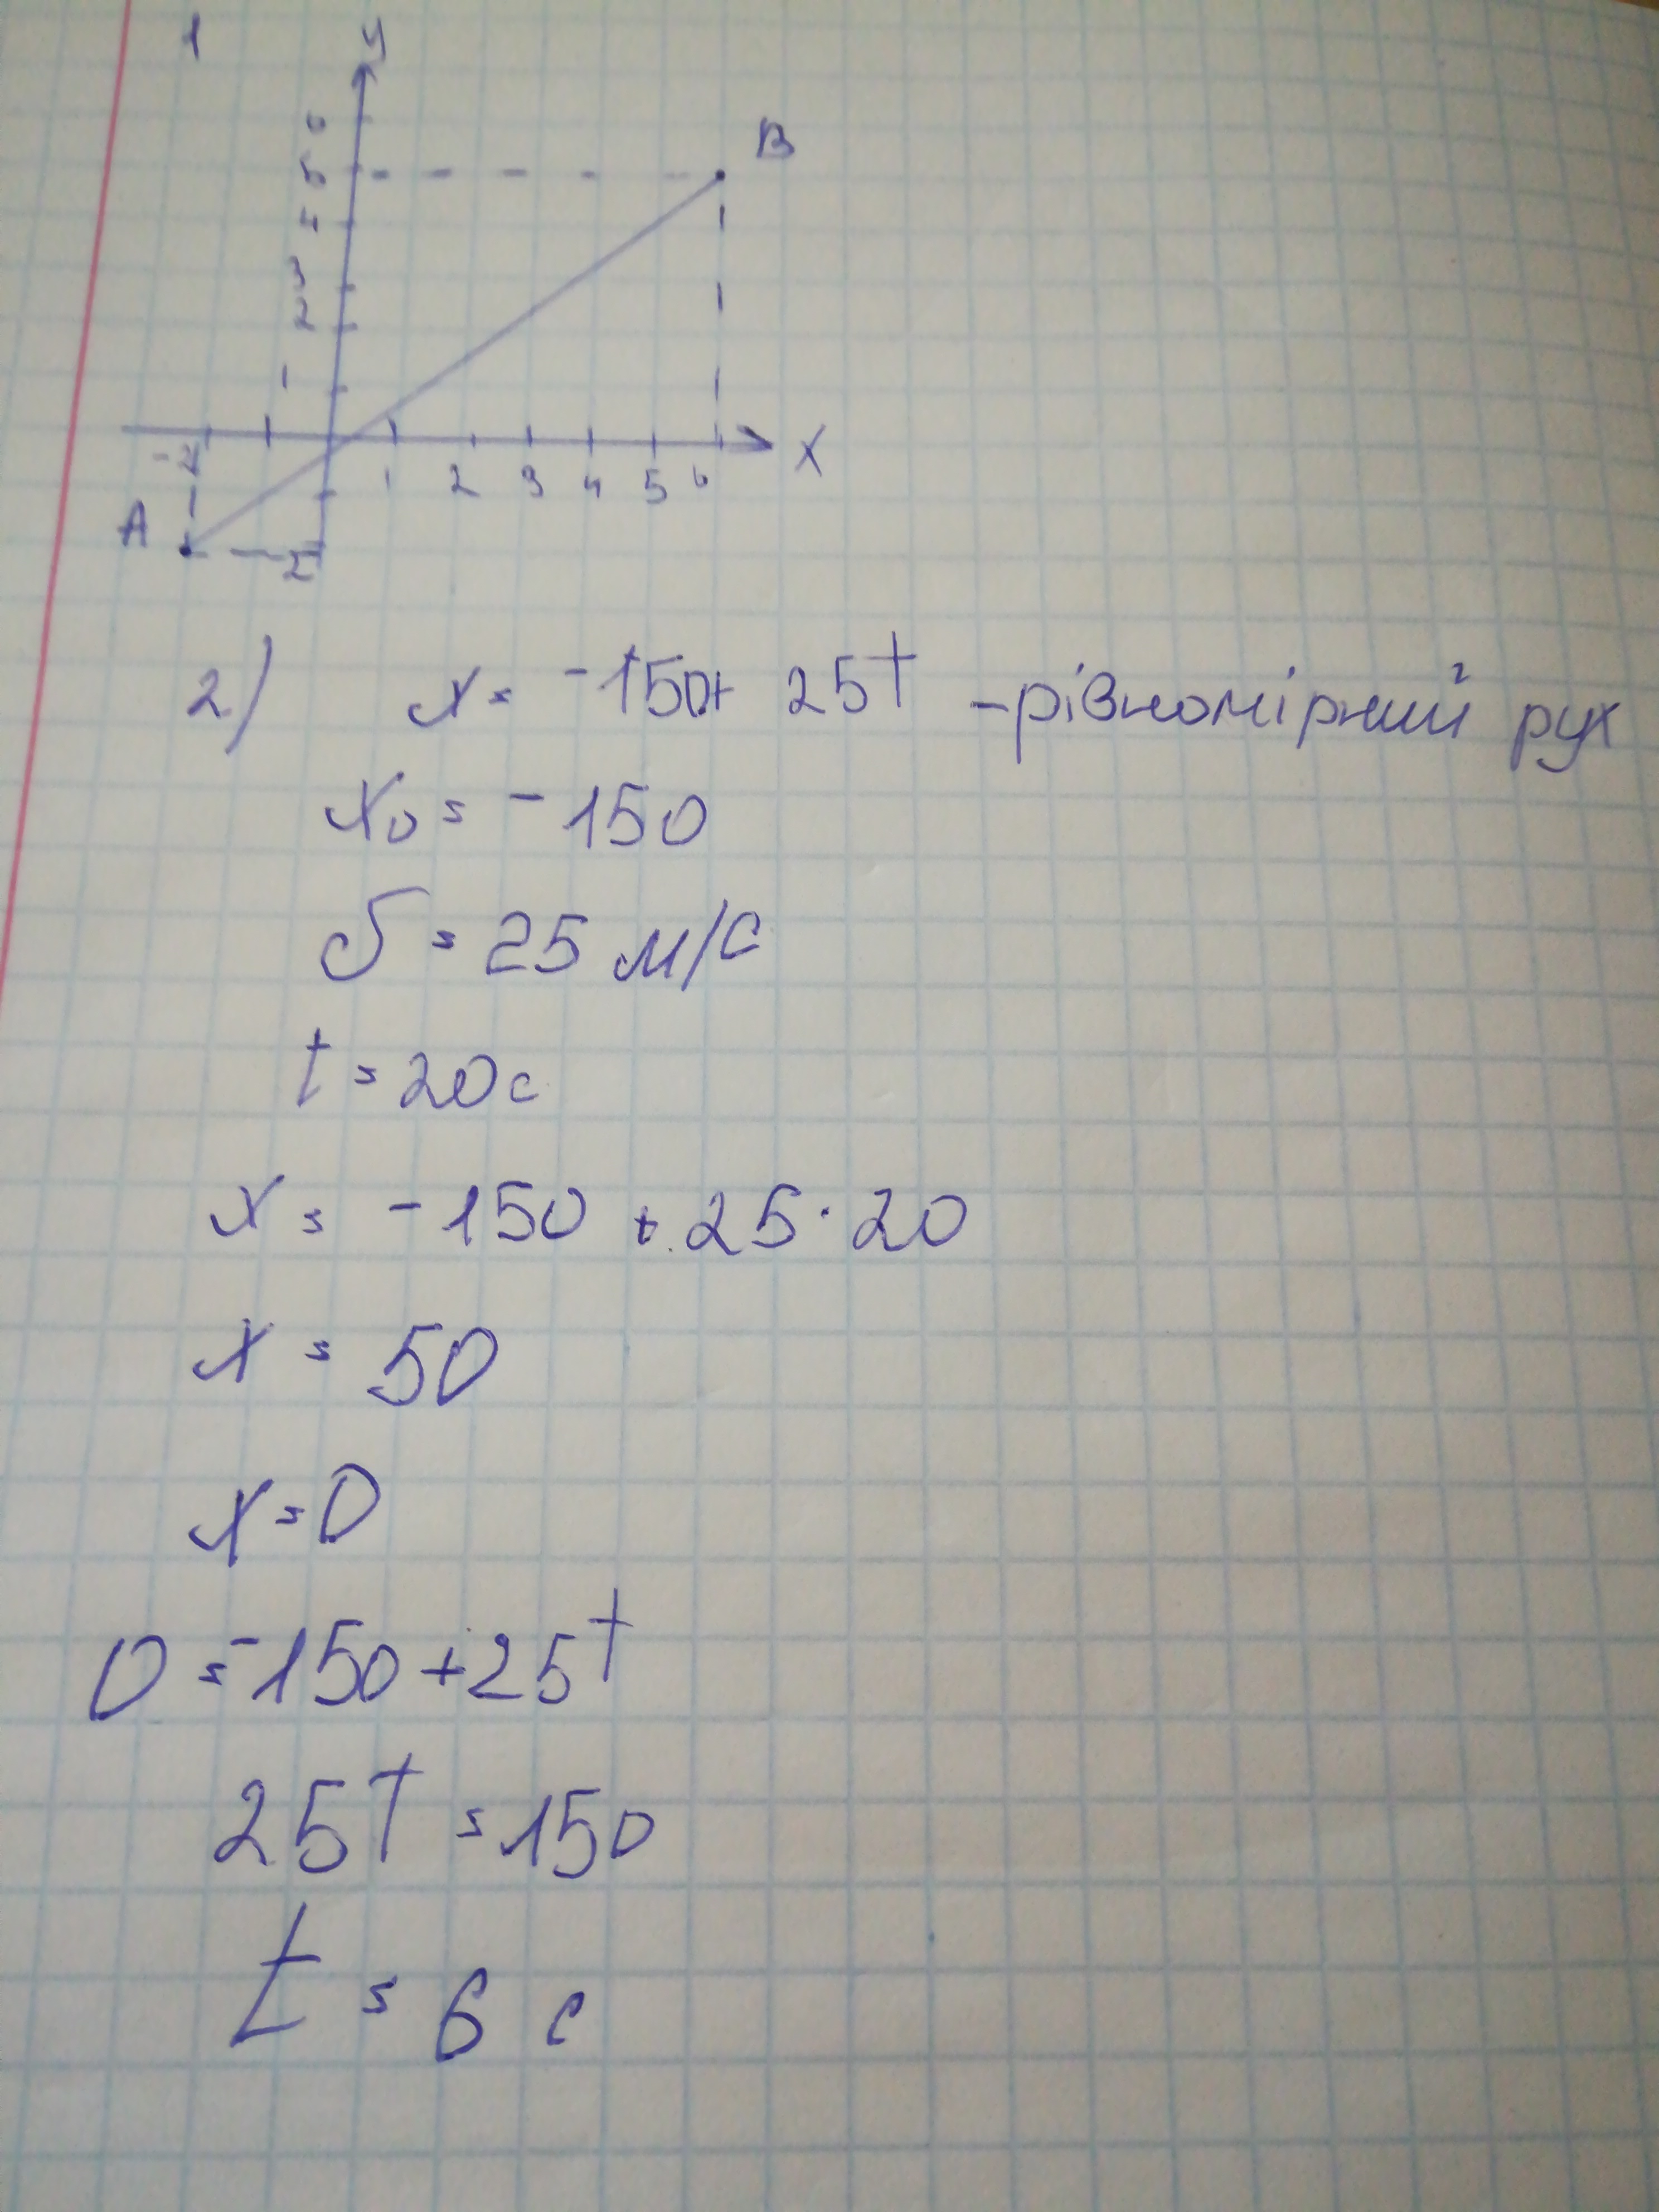 1
У
6
5
3
2
1
В
-2
1 2 3 4 5 6
X
А
2
2) x = -150 + 25t - рівномірний рух
x0 = -150
υ = 25 м/с
t = 20 с
x = -150 + 25·20
x = 50
x = 0
0 = -150 + 25t
25t = 150
t = 6 с